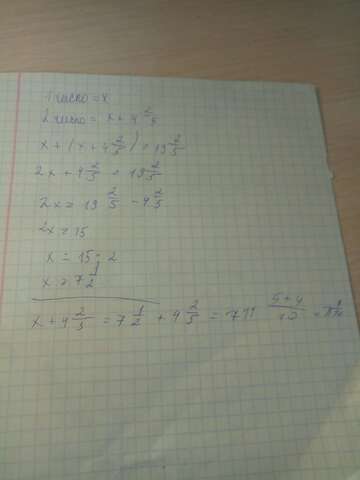 1 число = x
2 число = x + 4 2/5
x + (x + 4 2/5) = 19 2/5
2x + 4 2/5 = 19 2/5
2x = 19 2/5 - 4 2/5
2x = 15
x = 15 : 2
x = 7 1/2
x + 4 2/5 = 7 1/2 + 4 2/5 = 5+4/10 =